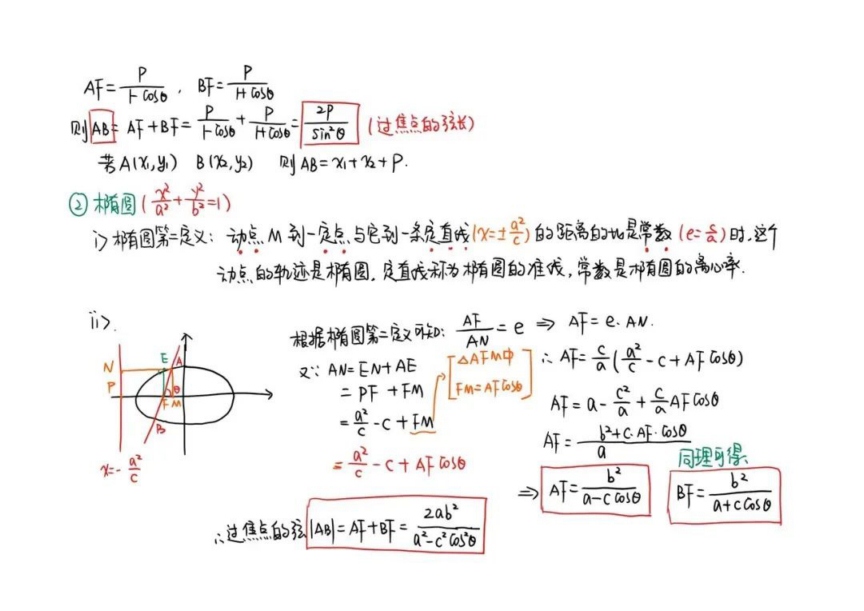 AF = P/(1-cosθ) , BF = P/(1+cosθ)
则 AB = AF + BF = P/(1-cosθ) + P/(1+cosθ) = 2P/sin²θ (过焦点的弦长)
若 A(x₁,y₁) B(x₂,y₂) 则 AB = x₁ + x₂ + P.
② 椭圆 (x²/a² + y²/b² = 1)
i> 椭圆第二定义: 动点 M 到一定点与它到一条定直线 (x=±a²/c) 的距离的比是常数 (e=c/a) 时,这个
动点的轨迹是椭圆. 定直线称为椭圆的准线, 常数是椭圆的离心率.
ii>.
N E A
P F M θ
B
x=-a²/c
根据椭圆第二定义可知: AF/AN = e ⇒ AF = e·AN.
又∵ AN = EN + AE
= PF + FM
= a²/c - c + FM
= a²/c - c + AF cosθ
△AFM中
FM = AF cosθ
∴ AF = c/a (a²/c - c + AF cosθ)
AF = a - c²/a + c/a AF cosθ
AF = (b² + c·AF·cosθ)/a
同理可得:
⇒ AF = b²/(a-c cosθ) BF = b²/(a+c cosθ)
∴过焦点的弦 |AB| = AF + BF = 2ab²/(a²-c²cos²θ)